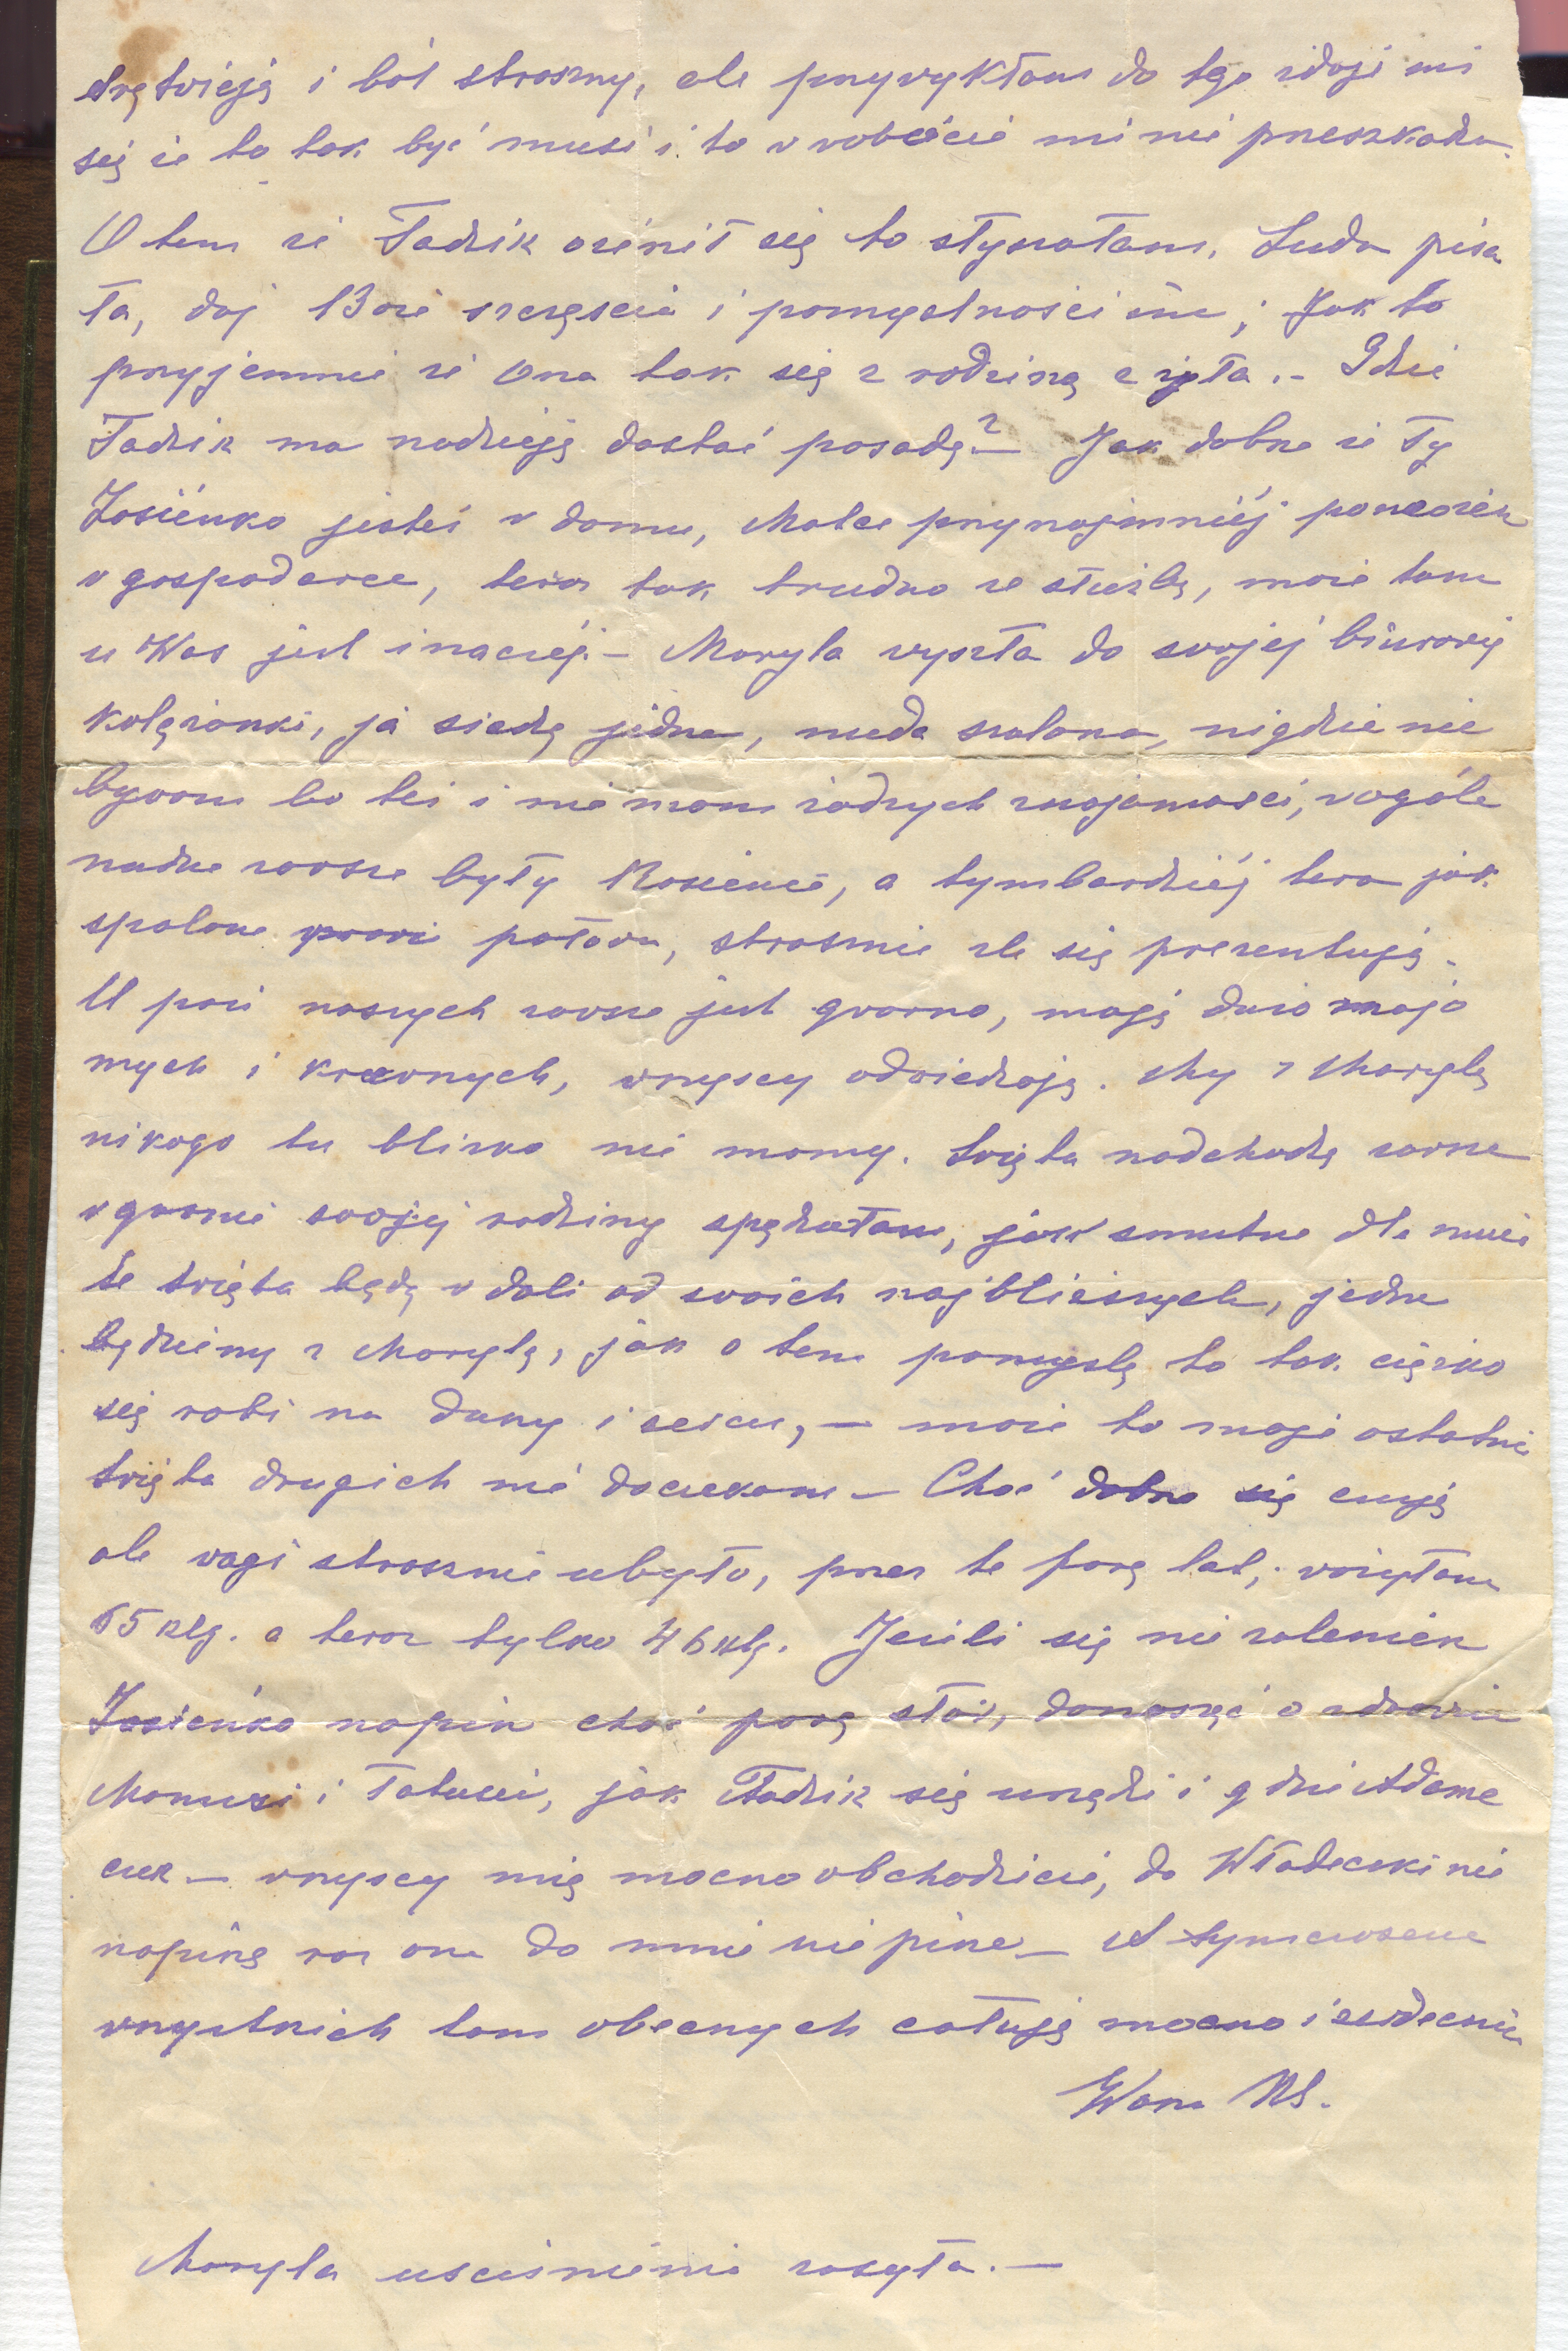 drętwieją i ból straszny, ale przywykłam do tego zdaje mi
się że to tak być musi i to w robocie mi nie przeszkadza.
O tem że Tadzik ożenił się to słyszałam, Luda pisa
ła, daj Boże szczęście i pomyślności im; Jak to
przyjemnie że Ona tak się z rodziną zżyła.- Gdzie
Tadzik ma nadzieję dostać posadę?- Jak dobrze że Ty
Zosieńko jesteś w domu, Matce przynajmniéj pomożesz
w gospodarce, teraz tak trudno ze służbą, może tam
u Was jest inaczéj.- Maryla wyszła do swojéj biurowéj
koleżanki, ja siedzę jedna, nuda szalona, nigdzie nie
bywam bo też i nie mam żadnych znajomości, wogóle
nudne zawsze były Rosienie, a tymbardziéj teraz jak
spalone prawie połowa, strasznie źle się prezentują.
U pań naszych zawsze jest gwarno, mają dużo znajo
mych i krewnych, wszyscy odwiedzają. My z Marylą
nikogo tu blizko nie mamy. Święta nadchodzą zawsze
w gronie swojej rodziny spędzałam, jak smutne dla mnie
te święta będą w dali od swoich najbliższych, jedne
będziemy z Marylą, jak o tem pomyślę to tak ciężko
się robi na duszy i sercu,- może to moje ostatnie
święta drugich nie doczekam - Choć dobrze się czuję
ale wagi strasznie ubyło, przez te parę lat, ważyłam
65 klg. a teraz tylko 46 klg. Jeżeli się nie rolenisz
Zosieńko napisz choć parę słów, donosząc o zdrowiu
Mamusi i Tatusia, jak Tadzik się urządzi i gdzie Adame
czek - wszyscy mię mocno obchodzicie, do Władeczki nie
napiszę raz ona do mnie nie pisze - A tymczasem
wszystkich tam obecnych całuję mocno i serdecznie
Wasza NS.
Maryla uściśnienia zasyła.-